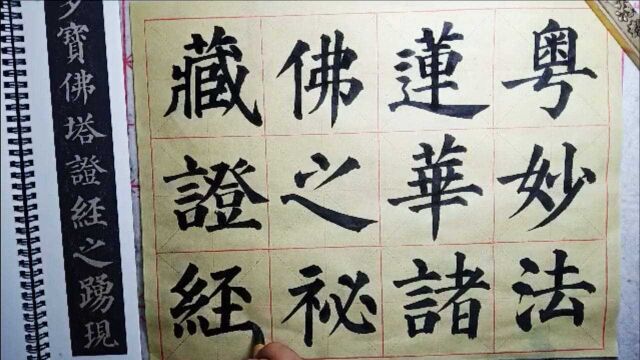 粤妙法
蓮華諸
佛之祕
藏證經
多寶佛塔證經之踴現